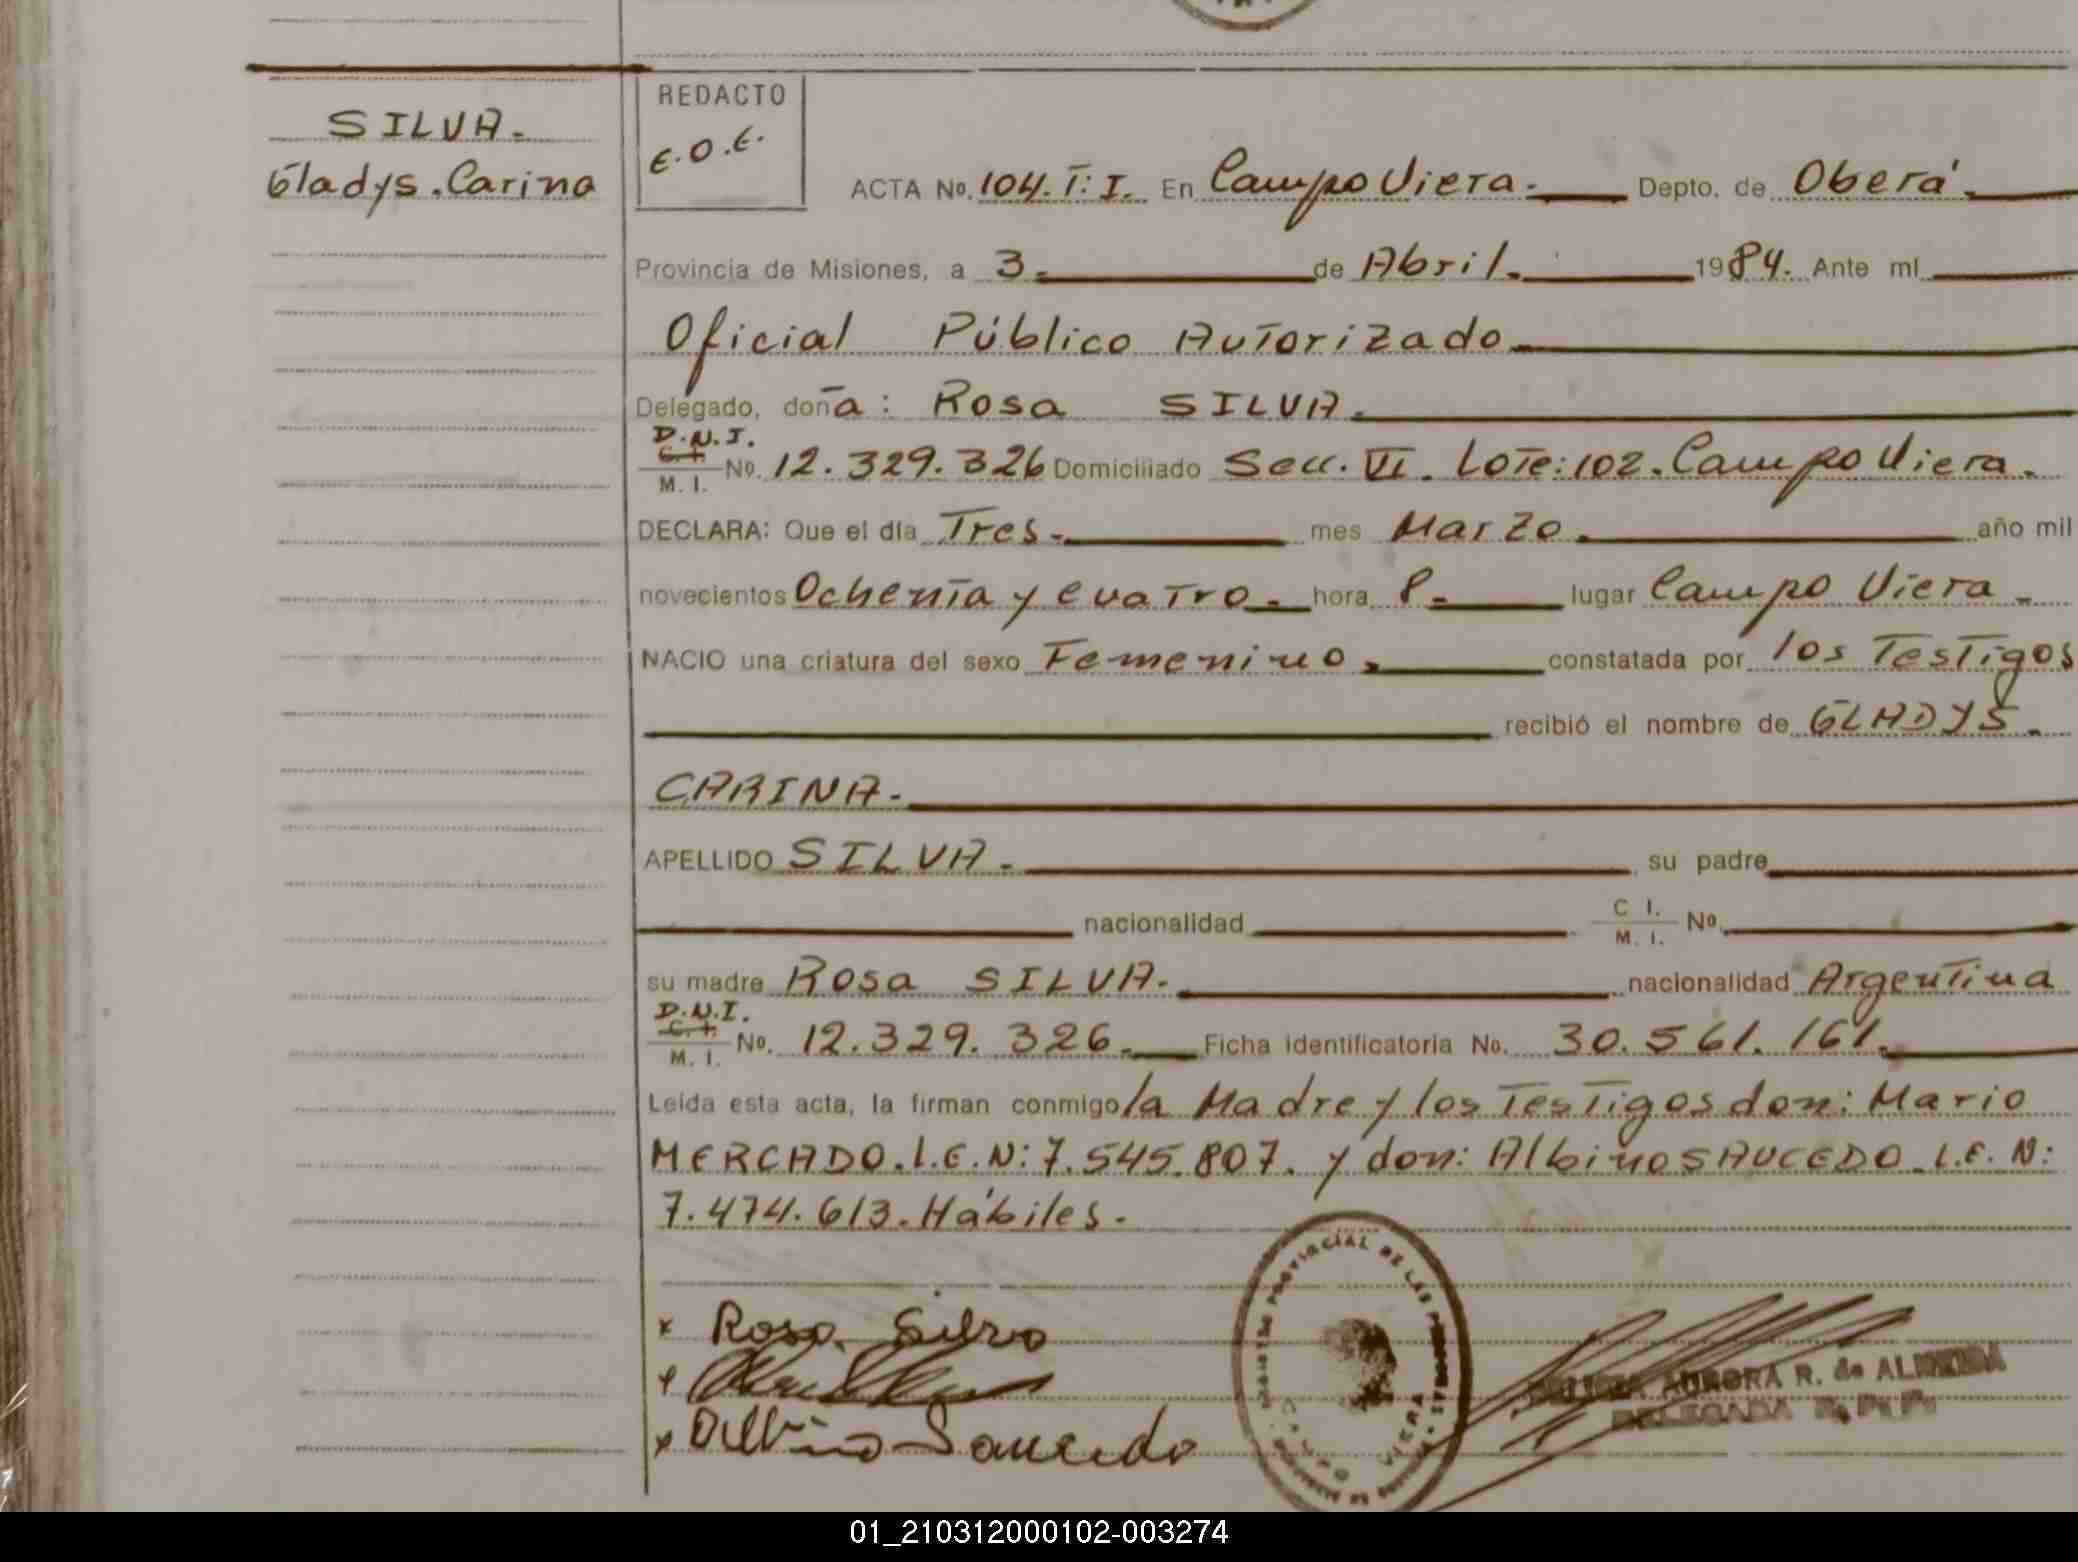 SILVA.
Gladys.Carina
REDACTO
E.O.E.
ACTA No. 104.T:I. En Campo Viera. Depto. de Oberá.
Provincia de Misiones, a 3. de Abril. 1984. Ante mí
Oficial Público Autorizado.
Delegado, doña: Rosa SILVA.
D.N.I.
C.I.
M. I. No. 12.329.326 Domiciliado Secc. VI. Lote:102. Campo Viera.
DECLARA: Que el día Tres. mes Marzo. año mil
novecientos Ochenta y cuatro. hora 8. lugar Campo Viera.
NACIO una criatura del sexo Femenino. constatada por los Testigos
recibió el nombre de GLADYS.
CARINA.
APELLIDO SILVA. su padre
nacionalidad C I. M. I. No.
su madre Rosa SILVA. nacionalidad Argentina
D.N.I.
C.I.
M. I. No. 12.329.326. Ficha identificatoria No. 30.561.161.
Leída esta acta, la firman conmigo la Madre y los Testigos don: Mario
MERCADO.L.E.N:7.545.807. y don: Albino SAUCEDO. L.E.N:
7.474.613. Hábiles.
x Rosa Silva
x Albino Saucedo
PROVINCIAL DE LAS PERSONAS
CAMPO VIERA
AURORA R. de ALMEIDA
DELEGADA R. P. P.
01_210312000102-003274